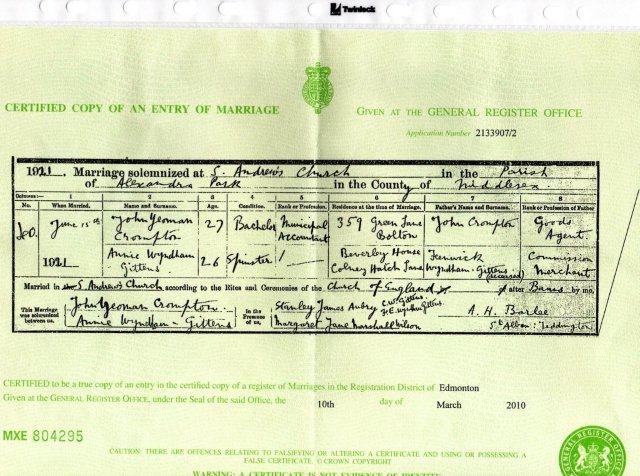 Twinlock
CERTIFIED COPY OF AN ENTRY OF MARRIAGE
GIVEN AT THE GENERAL REGISTER OFFICE
Application Number 2133907/2
1921. Marriage solemnized at S. Andrew's Church in the Parish
of Alexandra Park in the County of Middlesex
Columns:— 1 2 3 4 5 6 7 8
No. When Married. Name and Surname. Age. Condition. Rank or Profession. Residence at the time of Marriage. Father's Name and Surname. Rank or Profession of Father
June 15th John Yeoman Crompton 27 Bachelor Municipal Accountant 359 Green Lane Bolton John Crompton Goods Agent.
1921 Annie Wyndham Gittens 26 Spinster / Beverley House Colney Hatch Lane Fenwick Wyndham-Gittens (deceased) Commission Merchant
Married in the S. Andrew's Church according to the Rites and Ceremonies of the Church of England or after Banns by me,
This Marriage was solemnized between us, John Yeoman Crompton. Annie Wyndham-Gittens
In the Presence of us, Stanley James Aubry Margaret Jane Marshall Wilson
A. H. Barlee
St Alban: Teddington
CERTIFIED to be a true copy of an entry in the certified copy of a register of Marriages in the Registration District of Edmonton
Given at the GENERAL REGISTER OFFICE, under the Seal of the said Office, the 10th day of March 2010
MXE 804295
CAUTION: THERE ARE OFFENCES RELATING TO FALSIFYING OR ALTERING A CERTIFICATE AND USING OR POSSESSING A
FALSE CERTIFICATE. © CROWN COPYRIGHT
WARNING: A CERTIFICATE IS NOT EVIDENCE OF IDENTITY.
GENERAL REGISTER OFFICE